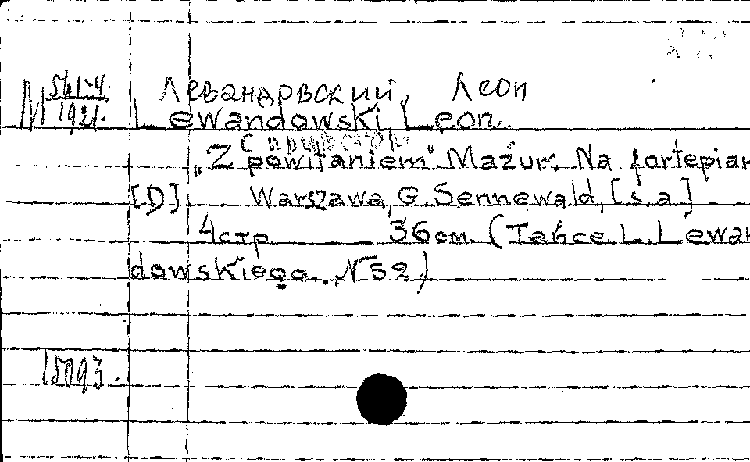 М 561-4 Левандовский, Леон
1921. Lewandowski Leon.
"Z powitaniem" Mazur. Na fortepian
[D] Warszawa, G. Sennewald, [s.a.]
4 стр 36 см. (Tańce L. Lewan
dowskiego. N 52)
15093.